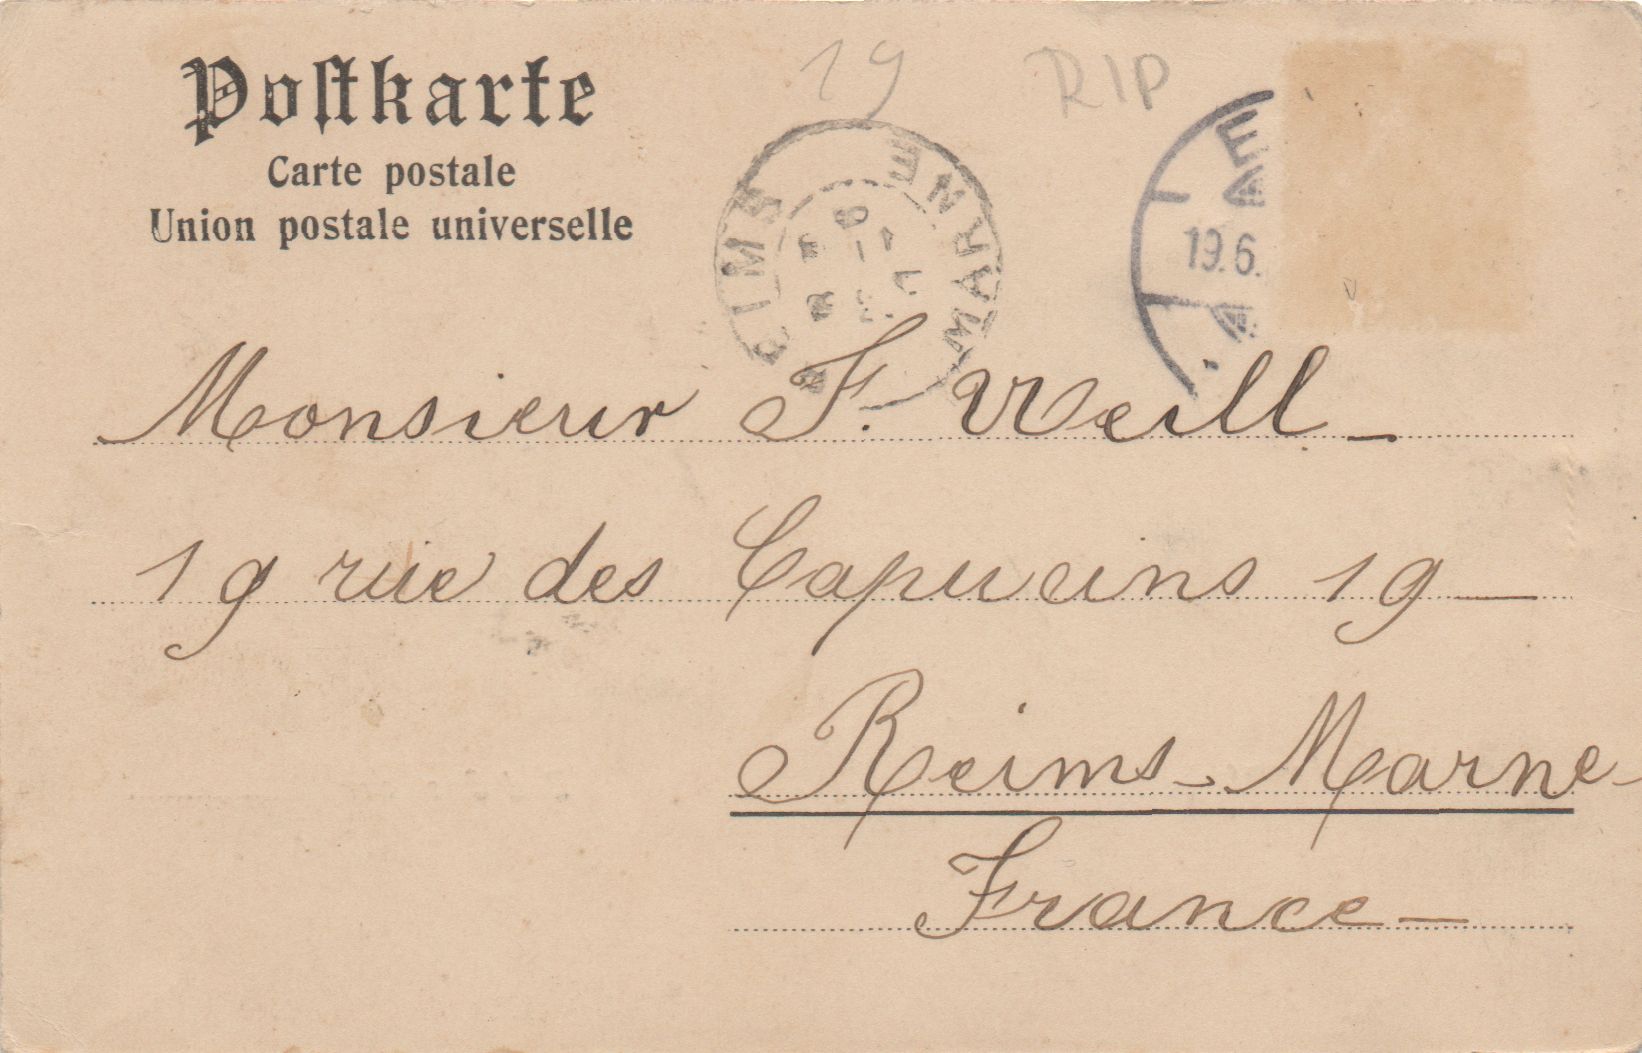 Postkarte
Carte postale
Union postale universelle
19
RIP
MARNE
19.6.
Monsieur F. Weill
19 rue des Capucins 19
Reims - Marne
France